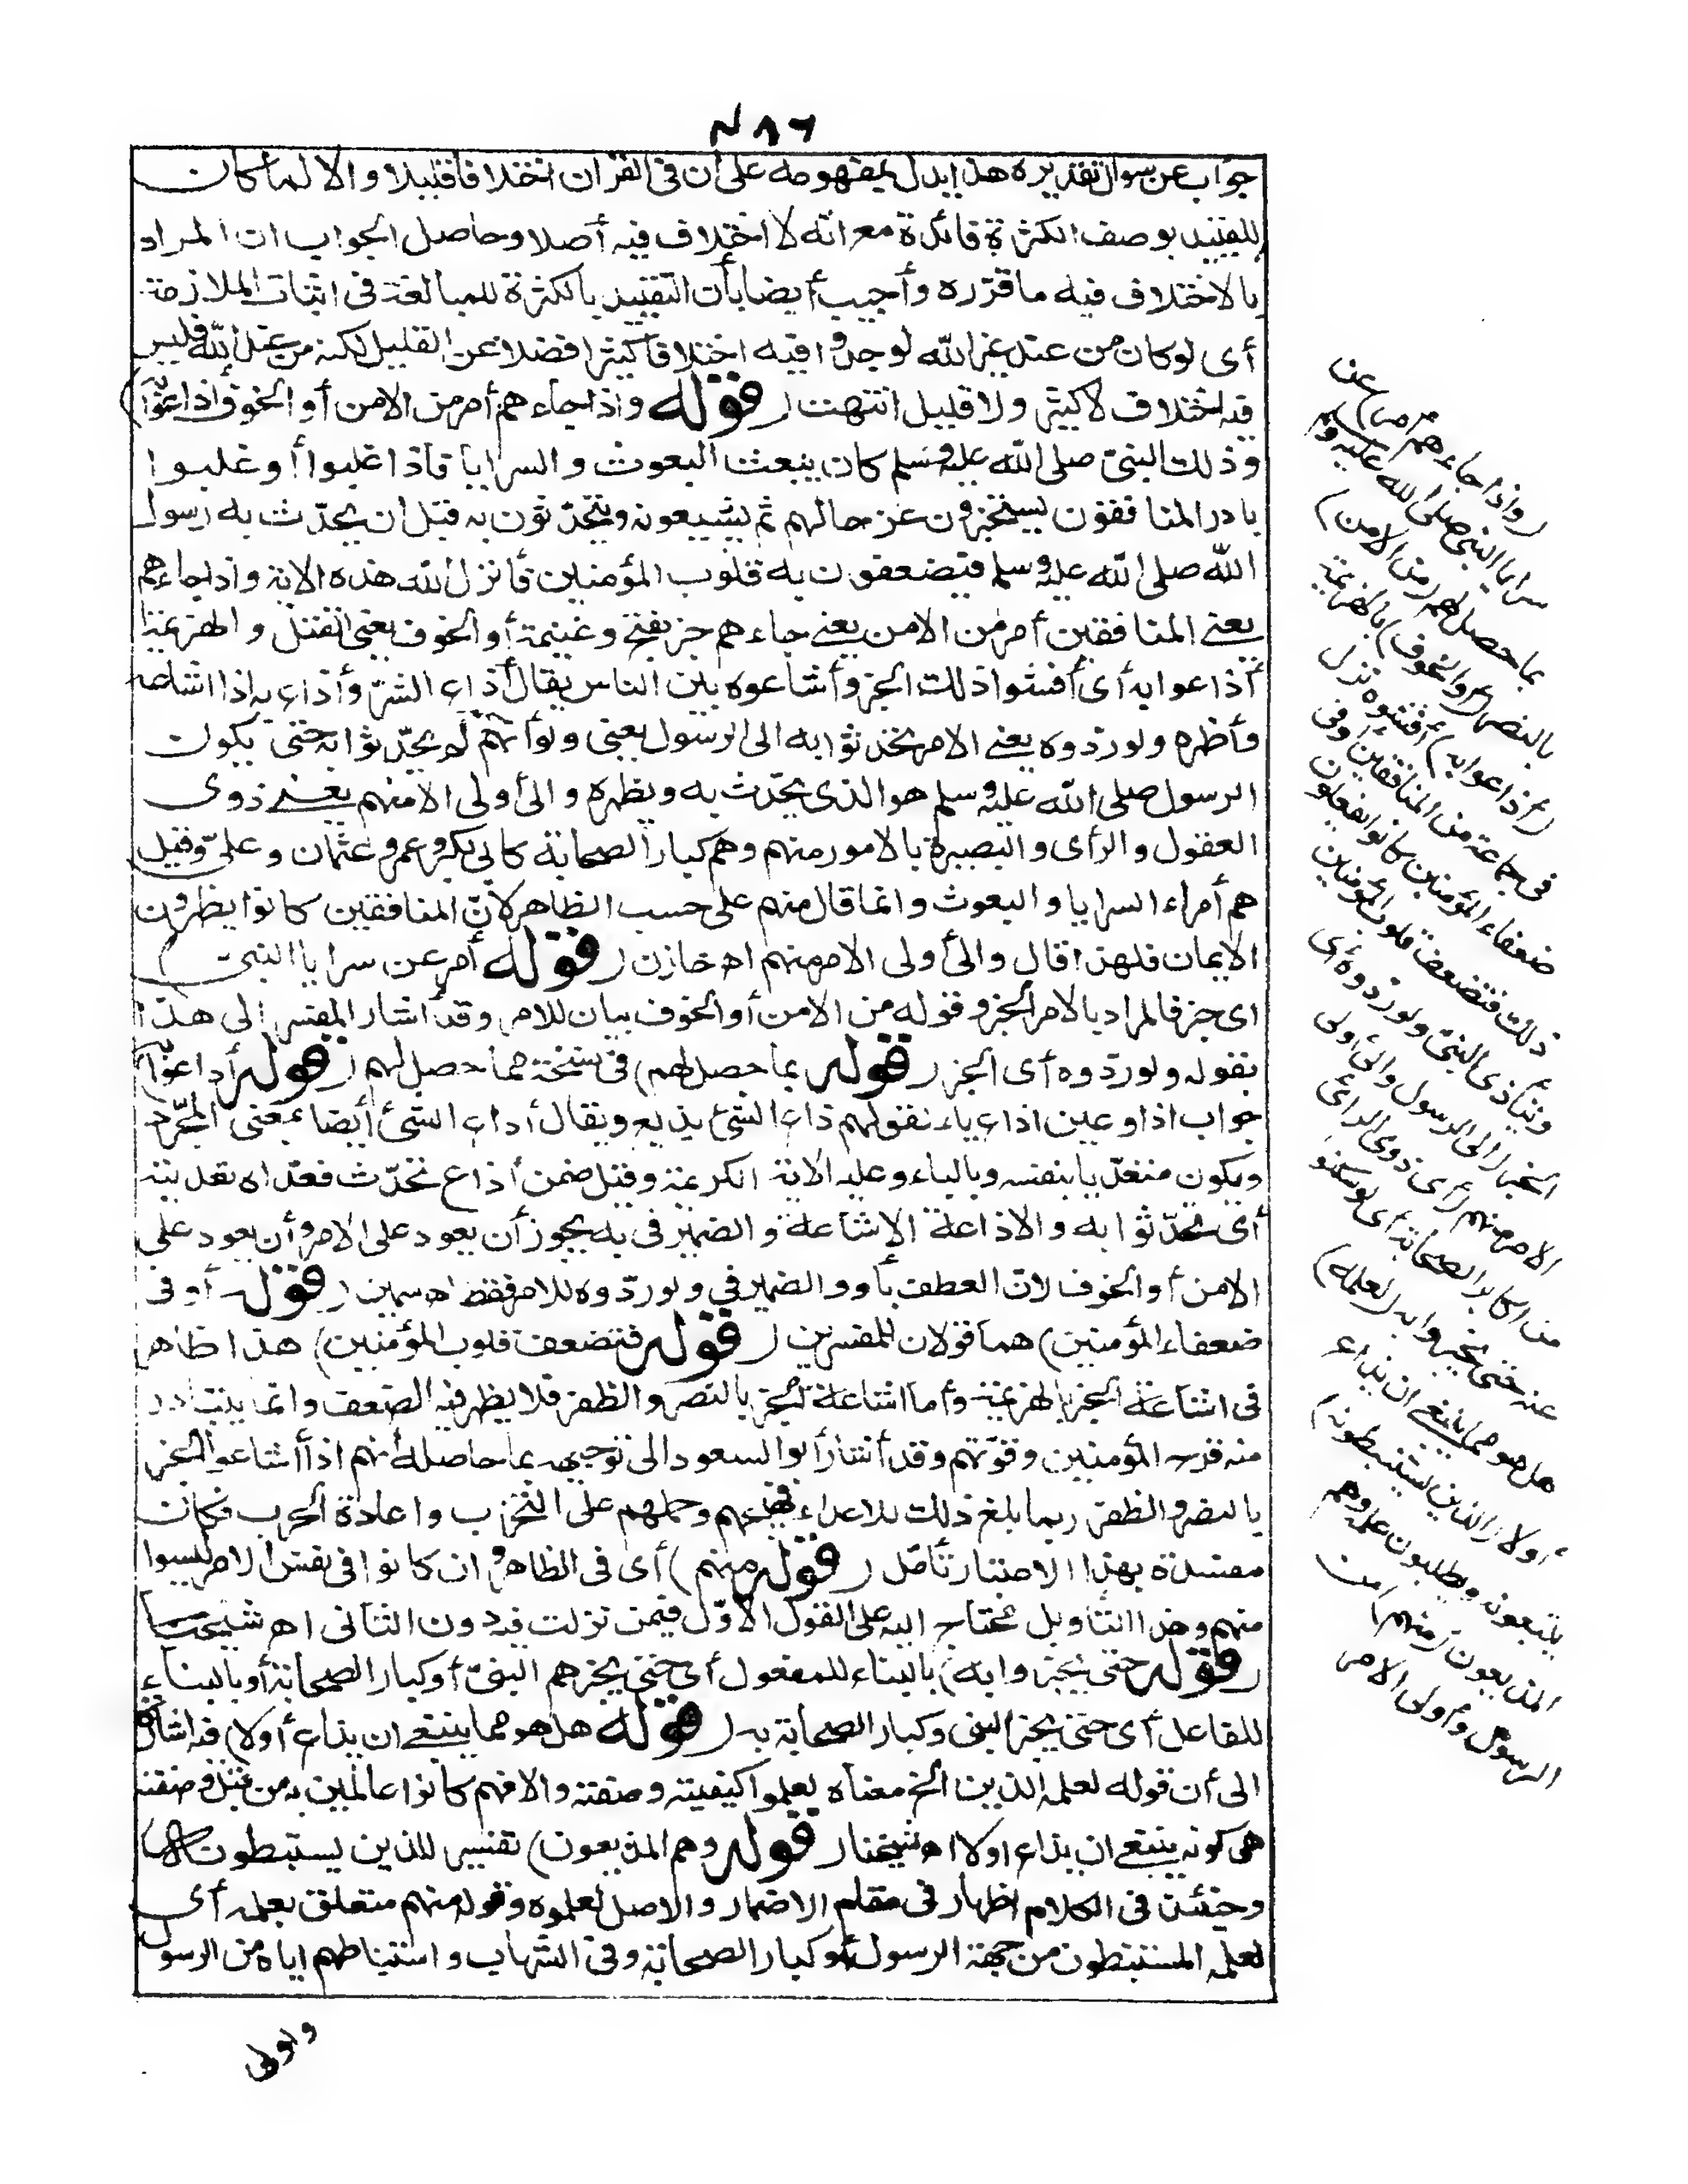 ٤٨٦
جواب عن سوال تقديره هذا يدل بمفهومه على أن فى القرآن اختلافا قليلا والا لما كان
للتقييد بوصف الكثرة فائدة مع انه لا اختلاف فيه أصلا وحاصل الجواب ان المراد
بالاختلاف فيه ما قرّره وأجيب أيضا بأن التقييد بالكثرة للمبالغة فى اثبات الملازمة
أى لوكان من عند غير الله لوجدوا فيه اختلافا كثيرا فضلا عن القليل لكنه من عند الله فليس
فيه اختلاف لا كثير ولا قليل انتهت (قوله واذا جاءهم أمر من الامن أو الخوف أذاعوا به)
وذلك النبىّ صلى الله عليه وسلم كان يبعث البعوث والسرايا فاذا غلبوا أو غلبوا
بادر المنافقون يستخبرون عن حالهم ثم يشيعونه ويتحدّثون به قبل ان يحدّث به رسول
الله صلى الله عليه وسلم فيضعفون به قلوب المؤمنين فأنزل الله هذه الاية واذا جاءهم
يعنى المنافقين أمر من الامن يعنى جاءهم خبر بفتح وغنيمة أو الخوف يعنى القتل والهزيمة
أذاعوا به أى أفشوا ذلك الخبر وأشاعوه بين الناس يقال أذاع السّر وأذاع به اذا اشاعه
وأظهره ولو ردوه يعنى الامر تحدثوا به الى الرسول يعنى ولو أنهم لم يحدّثوا به حتى يكون
الرسول صلى الله عليه وسلم هو الذى يحدّث به ويظهره والى أولى الامر منهم يعنى ذوى
العقول والرأى والبصيرة بالامور منهم وهم كبار الصحابة كابى بكر وعمر وعثمان وعلىّ وقيل
هم أمراء السرايا والبعوث وانما قال منهم على حسب الظاهر لانّ المنافقين كانوا يظهرون
الايمان فلهذا قال والى أولى الامر منهم اه خازن (قوله أمر عن سرايا النبى)
اى خبر فالمراد بالامر الخبر وقوله من الامن أو الخوف بيان للامر وقد أشار المفسر الى هذا
بقوله ولو ردوه أى الخبر (قوله بما حصل لهم) فى نسخة مما حصل لهم (قوله أذاعوا به)
جواب اذا وعين اذاع ياء لقولهم ذاع الشئ يذيع ويقال أذاع الشئ أيضا بمعنى المجّرد
ويكون متعدّيا بنفسه وبالباء وعليه الاية الكريمة وقيل ضمن أذاع تحدّث فعدّاه تعديته
أى تحدّثوا به والاذاعة الاشاعة والضمير فى به يجوز أن يعود على الامر وأن يعود على
الامن أو الخوف لانّ العطف بأو والضمير فى ولو ردّوه للامر فقط اه سمين (قوله أو فى
ضعفاء المؤمنين) هما قولان للمفسرين (قوله فتضعف قلوب المؤمنين) هذا ظاهر
فى اشاعة الخبر بالهزيمة وأما اشاعة الخبر بالنصر والظفر فلا يظهر فيه الضعف وانما يتبادر
منه فرح المؤمنين وقوّتهم وقد أشار أبوا السعود الى توجيهه بما حاصله أنهم اذا أشاعوا الخبر
بالنصر والظفر ربما بلغ ذلك للاعداء وحملهم على التحزب واعادة الحرب فكانت
مفسدة بهذا الاعتبار تأمّل (قوله منهم) أى فى الظاهر وان كانوا فى نفس الامر ليسوا
منهم وهذا التأويل محتاج اليه على القول الاوّل فيمن نزلت فيه دون الثانى اه شيخنا
(قوله حتى يخبروا به) بالبناء للمفعول أى حتى يخبرهم النبىّ أو كبار الصحابة أو بالبناء
للفاعل أى حتى يخبر النبى وكبار الصحابة به (قوله هل هو مما ينبغى ان يذاع أولا) فيه اشارة
الى أن قوله لعلمه الذين الخ معناه لعلموا كيفيته وصفته والا فهم كانوا عالمين به من قبل وصفته
هى كونه ينبغى ان يذاع اولا اه شيخنا (قوله وهم المذيعون) تفسير للذين يستنبطونه
وحينئذ فى الكلام اظهار فى مقام الاضمار والاصل لعلموه وقوله منهم متعلق بعلمه أى
لعلمه المستنبطون من جهة الرسول أو كبار الصحابة وفى الشهاب واستنباطهم اياه من الرسول
وأولى
(واذا جاءهم أمر) عن
سرايا النبى صلى الله عليه وسلم
بما حصل لهم (من الامن)
بالنصر (أو الخوف) بالهزيمة
(أذاعوا به) أفشوه نزل
فى جماعة من المنافقين أو فى
ضعفاء المؤمنين كانوا يفعلون
ذلك فتضعف قلوب المؤمنين
ويتأذى النبىّ ولو ردوه أى
الخبر الى الرسول والى أولى
الامر منهم أى ذوى الرأى
من اكابر الصحابة أى لو سكتوا
عنه حتى يخبروا به (لعلمه)
هل هو مما ينبغى ان يذاع
أولا (الذين يستنبطونه)
يتبعونه ويطلبون علمه وهم
المذيعون (منهم) من
الرسول وأولى الامر